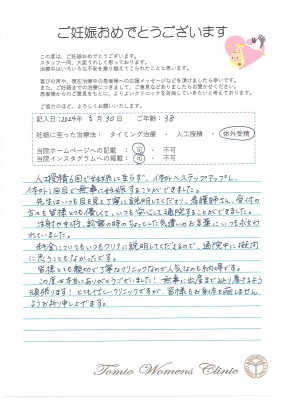 ご妊娠おめでとうございます
この度は、ご妊娠おめでとうございます。
スタッフ一同、大変うれしく思っております。
治療中はいろいろな不安を乗り越えてこられたことと思います。
喜びの声や、現在治療中の患者様への応援メッセージなどを頂けましたら幸いです。
また、ご妊娠までの治療につきまして、ご意見などありましたらお聞かせください。
患者様からのご意見をもとに、よりよいクリニックを目指していきたいと考えております。
ご協力のほど、よろしくお願いいたします。
記入日:2024年 5月30日 ご年齢:38
妊娠に至った治療法: タイミング治療 ・ 人工授精 ・ 体外受精
当院ホームページへの記載: 可 ・ 不可
当院インスタグラムへの掲載: 可 ・ 不可
人工授精6回で妊娠に至らず、体外へステップアップし、
体外1回目で無事に妊娠することができました。
先生はいつも目を見て丁寧に説明してくださり、看護師さん、受付の
方々も皆様とても優しくて、いつも安心して通院することができました。
注射や手術、診察の時のちょっとした気遣いのお言葉にいつも救わ
れていました。
料金についてもいつもクリアに説明してくださるので、通院中に疑問
に思うこともなかったです。
皆様とても親切で丁寧なクリニックなので人気なのも納得です。
この度は本当にありがとうございました! 無事に出産まで辿り着けるよう
頑張ります! とてもお忙しいクリニックですが、皆様もお身体を崩しませぬ
ようお祈り申し上げます。
Tomio Womens Clinic